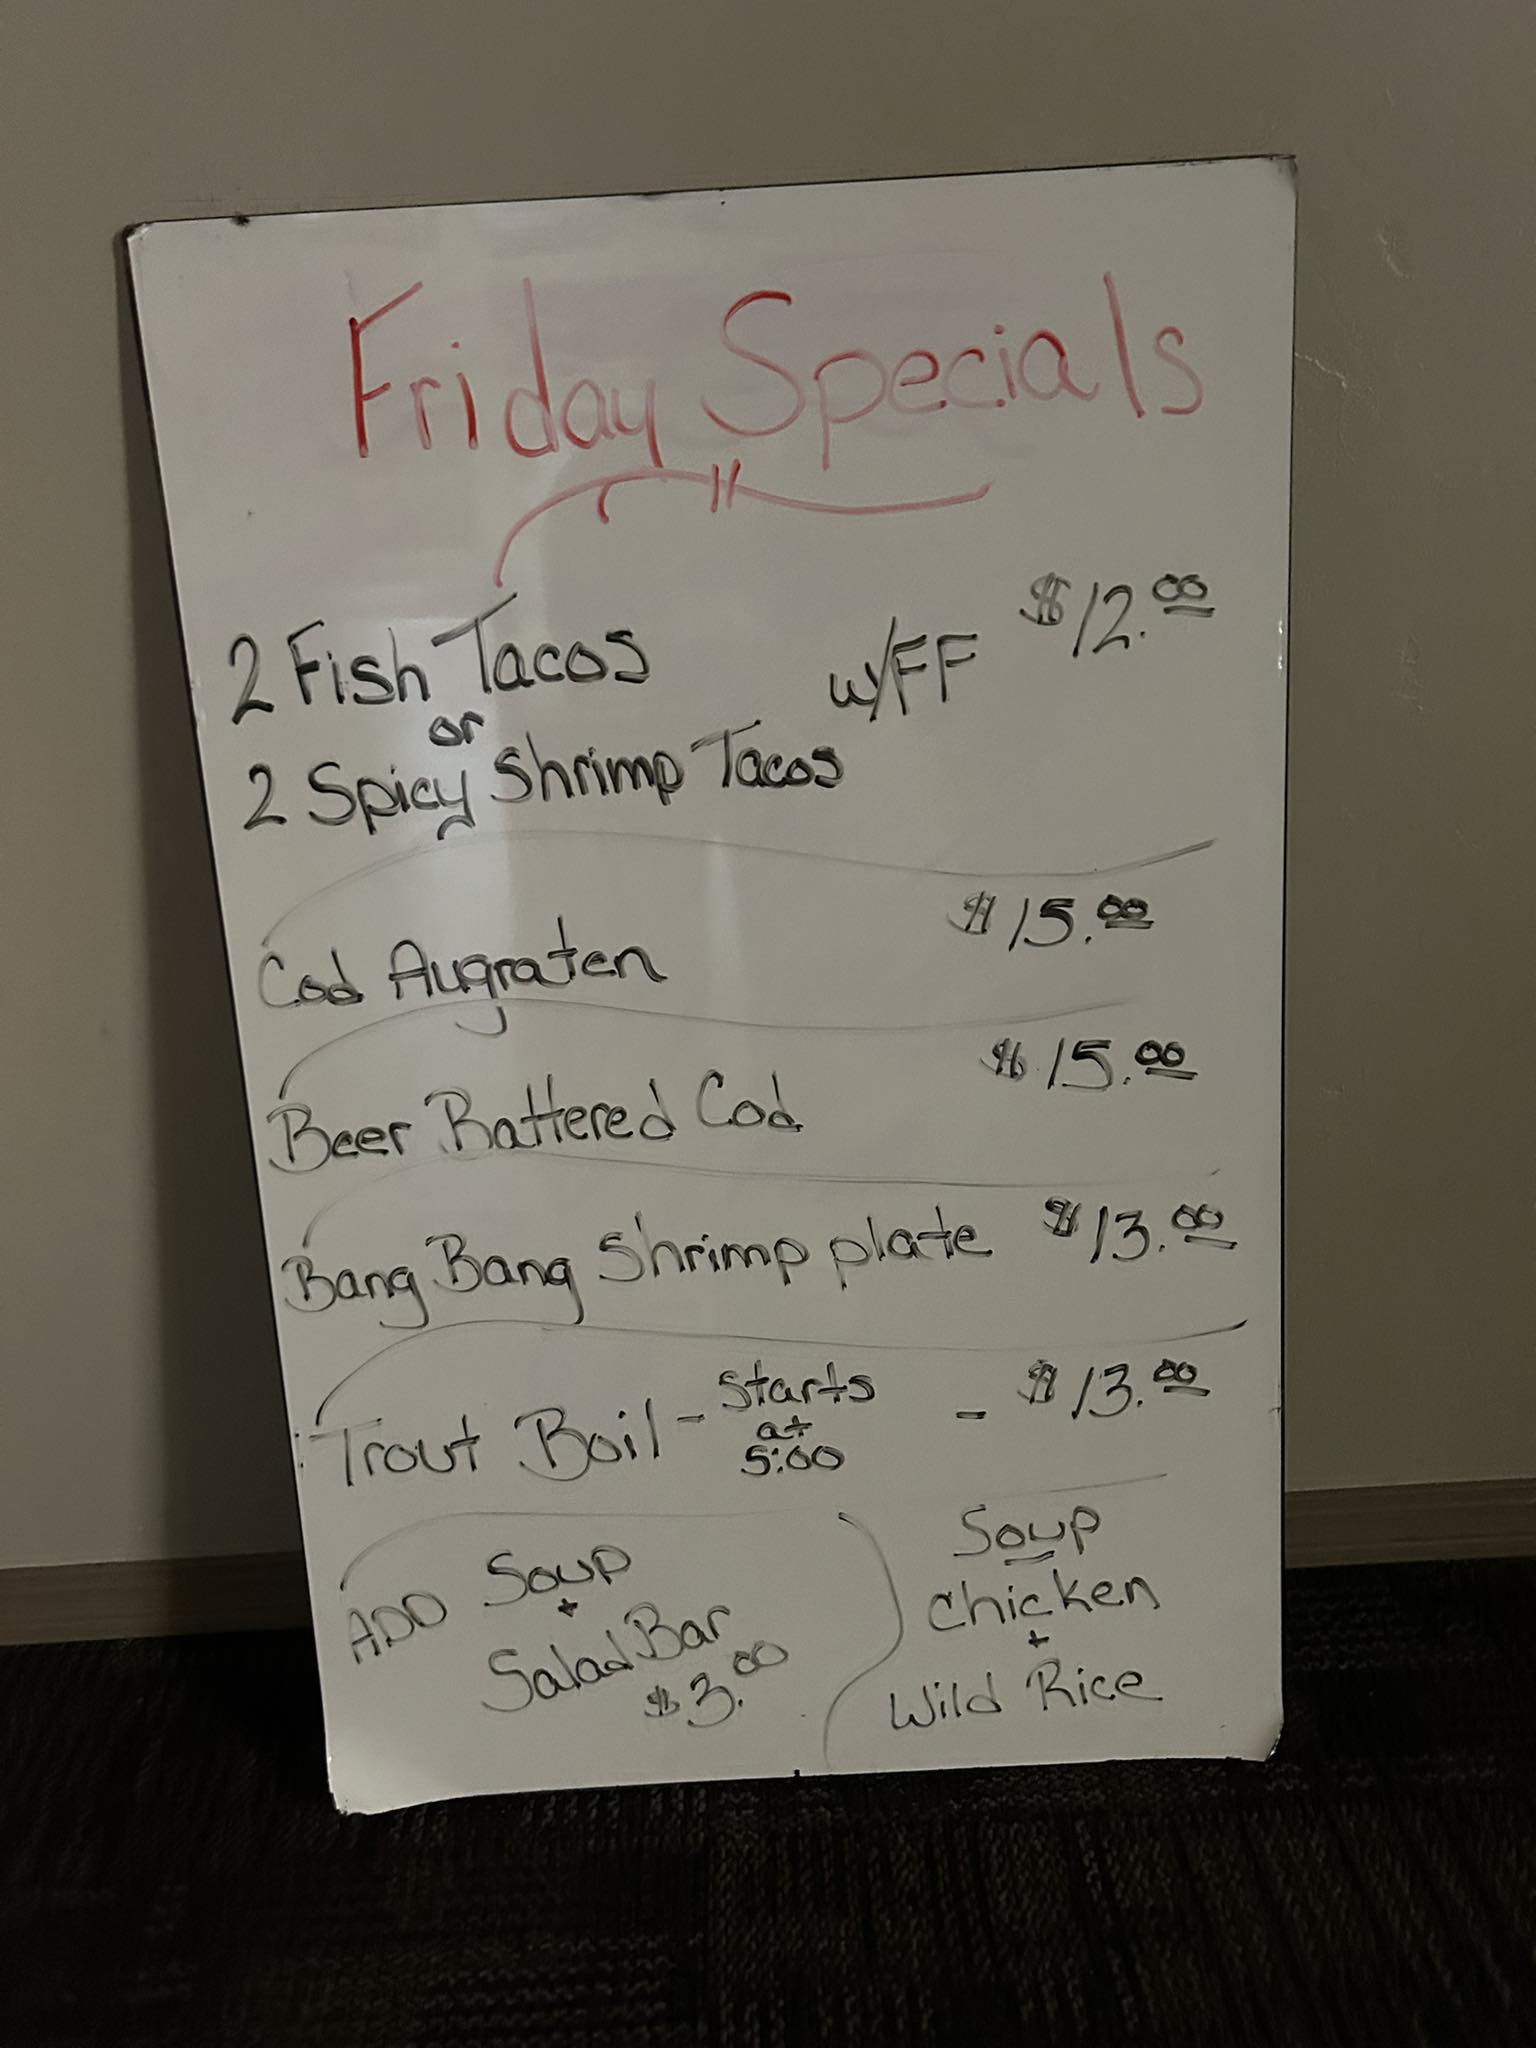 Friday Specials
2 Fish Tacos
or
2 Spicy Shrimp Tacos
w/FF $12.00
Cod Augraten $15.00
Beer Battered Cod $15.00
Bang Bang Shrimp plate $13.00
Trout Boil - Starts at 5:00 - $13.00
ADD Soup
+
Salad Bar
$3.00
Soup
Chicken
+
Wild Rice